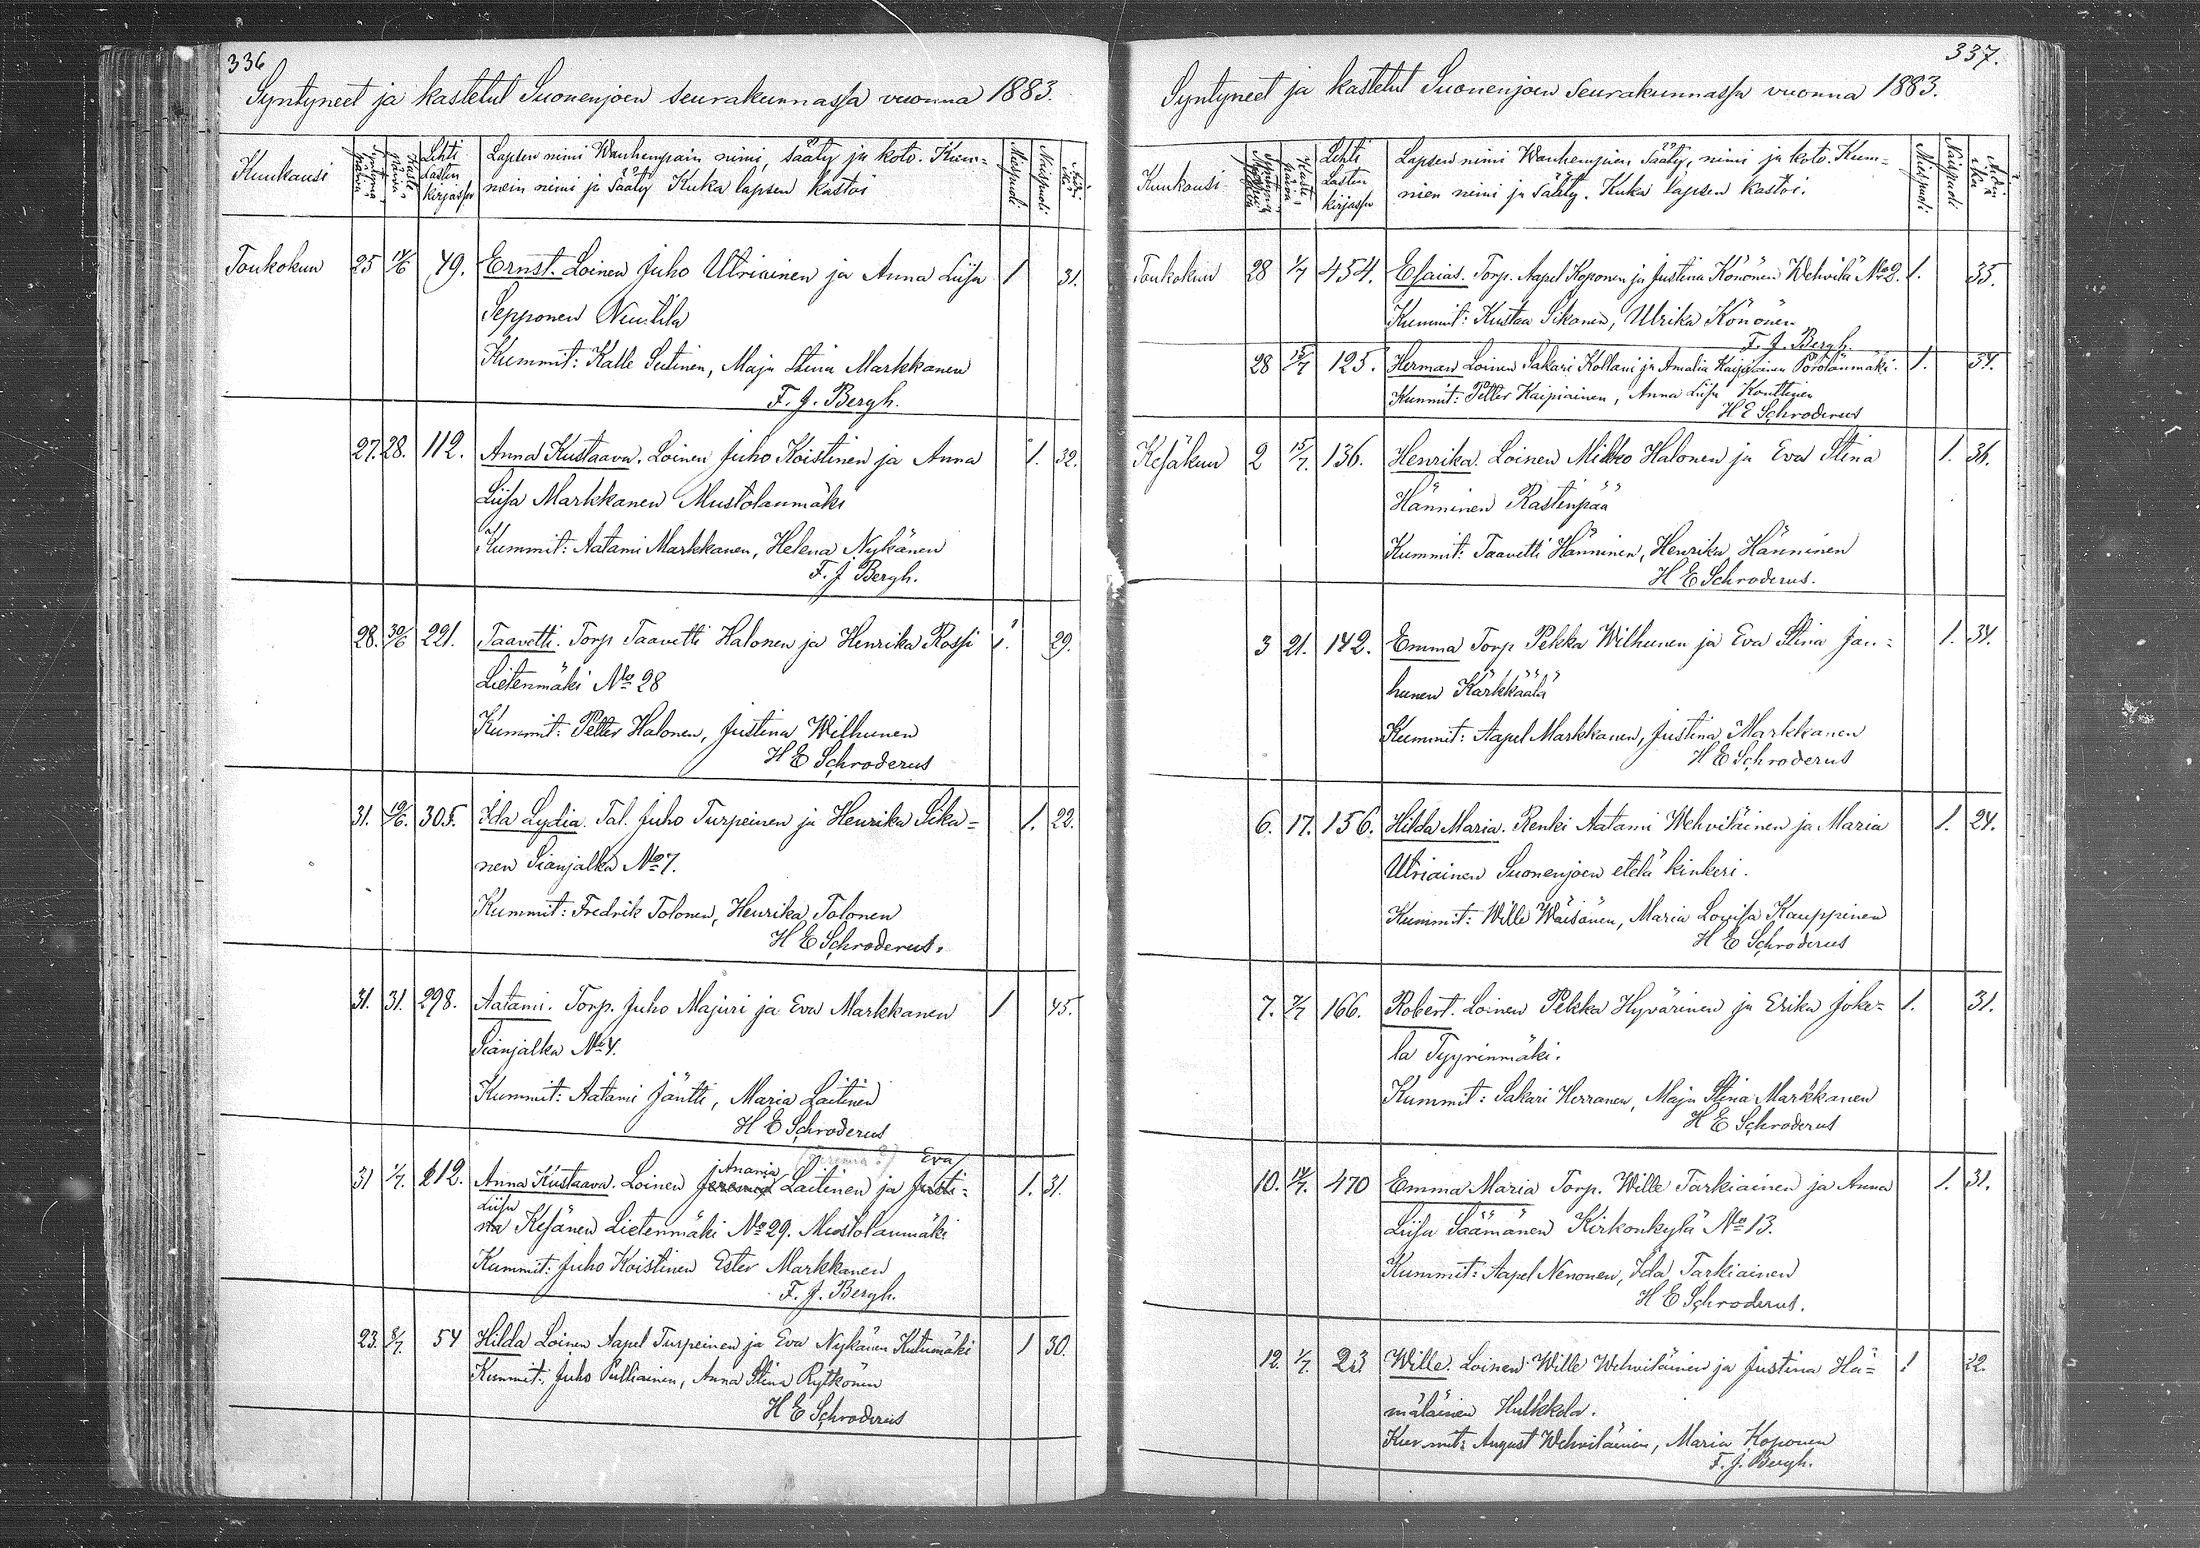 336
Syntyneet ja kastetut Suonenjoen seurakunnassa vuonna 1883.
Kuukausi Syntymä päivä Kaste päivä Lehti Lasten kirjassa Lapsen nimi Wanhempain nimi, sääty ja koto. Kum-
mein nimi ja Sääty Kuka lapsen kastoi Miespuoli Naispuoli Äidin ikä
Toukokuu 25 14/6 49. Ernst. Loinen Juho Utriainen ja Anna Liisa 1 31.
Sepponen Nuutila
Kummit: Kalle Sutinen, Maja Stina Markkanen
F. J. Bergh.
27. 28. 112. Anna Kustaava. Loinen Juho Koistinen ja Anna 1. 32.
Liisa Markkanen Mustolanmäki
Kummit: Aatami Markkanen, Helena Nykänen
F. J Bergh.
28. 30/6 221. Taavetti. Torp Taavetti Halonen ja Henrika Rossi 1. 29.
Lietenmäki No 28
Kummit: Petter Halonen, Justina Wilhunen
H E Schroderus
31. 10/6. 305. Ida Lydia. Tal. Juho Turpeinen ja Henrika Sika- 1. 22.
nen Sianjalka No 7.
Kummit: Fredrik Tolonen, Henrika Tolonen
H E Schroderus.
31. 31. 298. Aatami. Torp. Juho Majuri ja Eva Markkanen 1 45.
Sianjalka No 4.
Kummit: Aatami Jäntti, Maria Laitinen
H E Schroderus
Anania Eva
31 1/7. 212. Anna Kustaava. Loinen Jeremia Laitinen ja Justi- 1. 31.
Liisa
na Kesänen Lietenmäki No 29. Mustolanmäki
Kummit: Juho Koistinen Ester Markkanen
F. J. Bergh.
23. 8/7. 54 Hilda Loinen Aapel Turpeinen ja Eva Nykänen Kutumäki 1 30.
Kummit. Juho Pulliainen, Anna Stina Rytkönen
H E Schroderus
337.
Syntyneet ja kastetut Suonenjoen seurakunnassa vuonna 1883.
Kuukausi Syntymä päivä Kaste päivä Lehti Lasten kirjassa Lapsen nimi Wanhempien Sääty, nimi ja koto. Kum-
mien nimi ja Sääty. Kuka lapsen kastoi. Miespuoli Naispuoli Äidin ikä
Toukokuu 28 1/7 454. Esaias. Torp. Aapel Koponen ja Justina Könönen Wehvilä No 2. 1. 35.
Kummit: Kustaa Sikanen, Ulrika Könönen
F. J. Bergh.
28 15/7 125. Herman Loinen Sakari Kollani ja Amalia Kaipiainen Pörölänmäki. 1. 34.
Kummit: Petter Kaipiainen, Anna Liisa Konttinen
H E Schroderus
Kesäkuu 2 15/7. 136. Henrika. Loinen Mikko Halonen ja Eva Stina 1. 36.
Hänninen Rastinpää
Kummit: Taavetti Hänninen, Henrika Hänninen
H E Schroderus.
3 21. 142. Emma Torp Pekka Wilhunen ja Eva Stina Jan- 1. 34.
hunen Kärkkäälä
Kummit: Aapel Markkanen, Justina Markkanen
H E Schroderus
6. 17. 156. Hilda Maria. Renki Aatami Wehviläinen ja Maria 1. 24.
Utriainen Suonenjoen etelä kinkeri.
Kummit: Wille Wäisänen, Maria Lovisa Kauppinen
H E Schroderus
7. 7/7 166. Robert. Loinen Pekka Hyvärinen ja Erika Joke- 1. 31.
la Tyyrinmäki.
Kummit: Sakari Herranen, Maja Stina Markkanen
H E Schroderus
10. 14/7. 470 Emma Maria Torp. Wille Tarkiainen ja Anna 1. 31.
Liisa Säämänen Kirkonkylä No 13.
Kummit: Aapel Nenonen, Ida Tarkiainen
H E Schroderus.
12. 1/7. 23 Wille. Loinen Wille Wehviläinen ja Justina Hä- 1 22.
mäläinen Hulkkola.
Kummit: August Wehviläinen, Maria Koponen
F. J. Bergh.